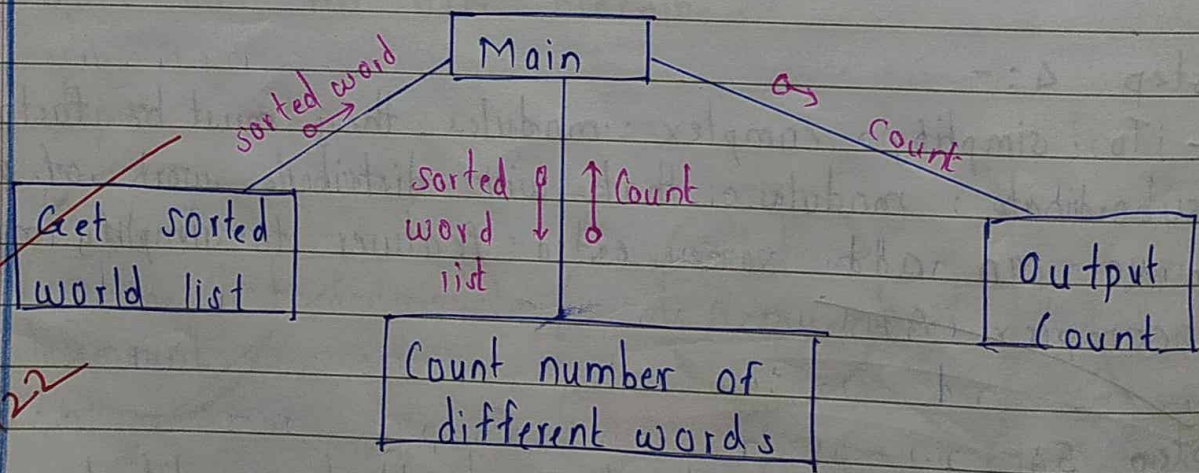 Main
sorted word
Count
sorted
word
list
Count
Get sorted
world list
Output
Count
Count number of
different words
22